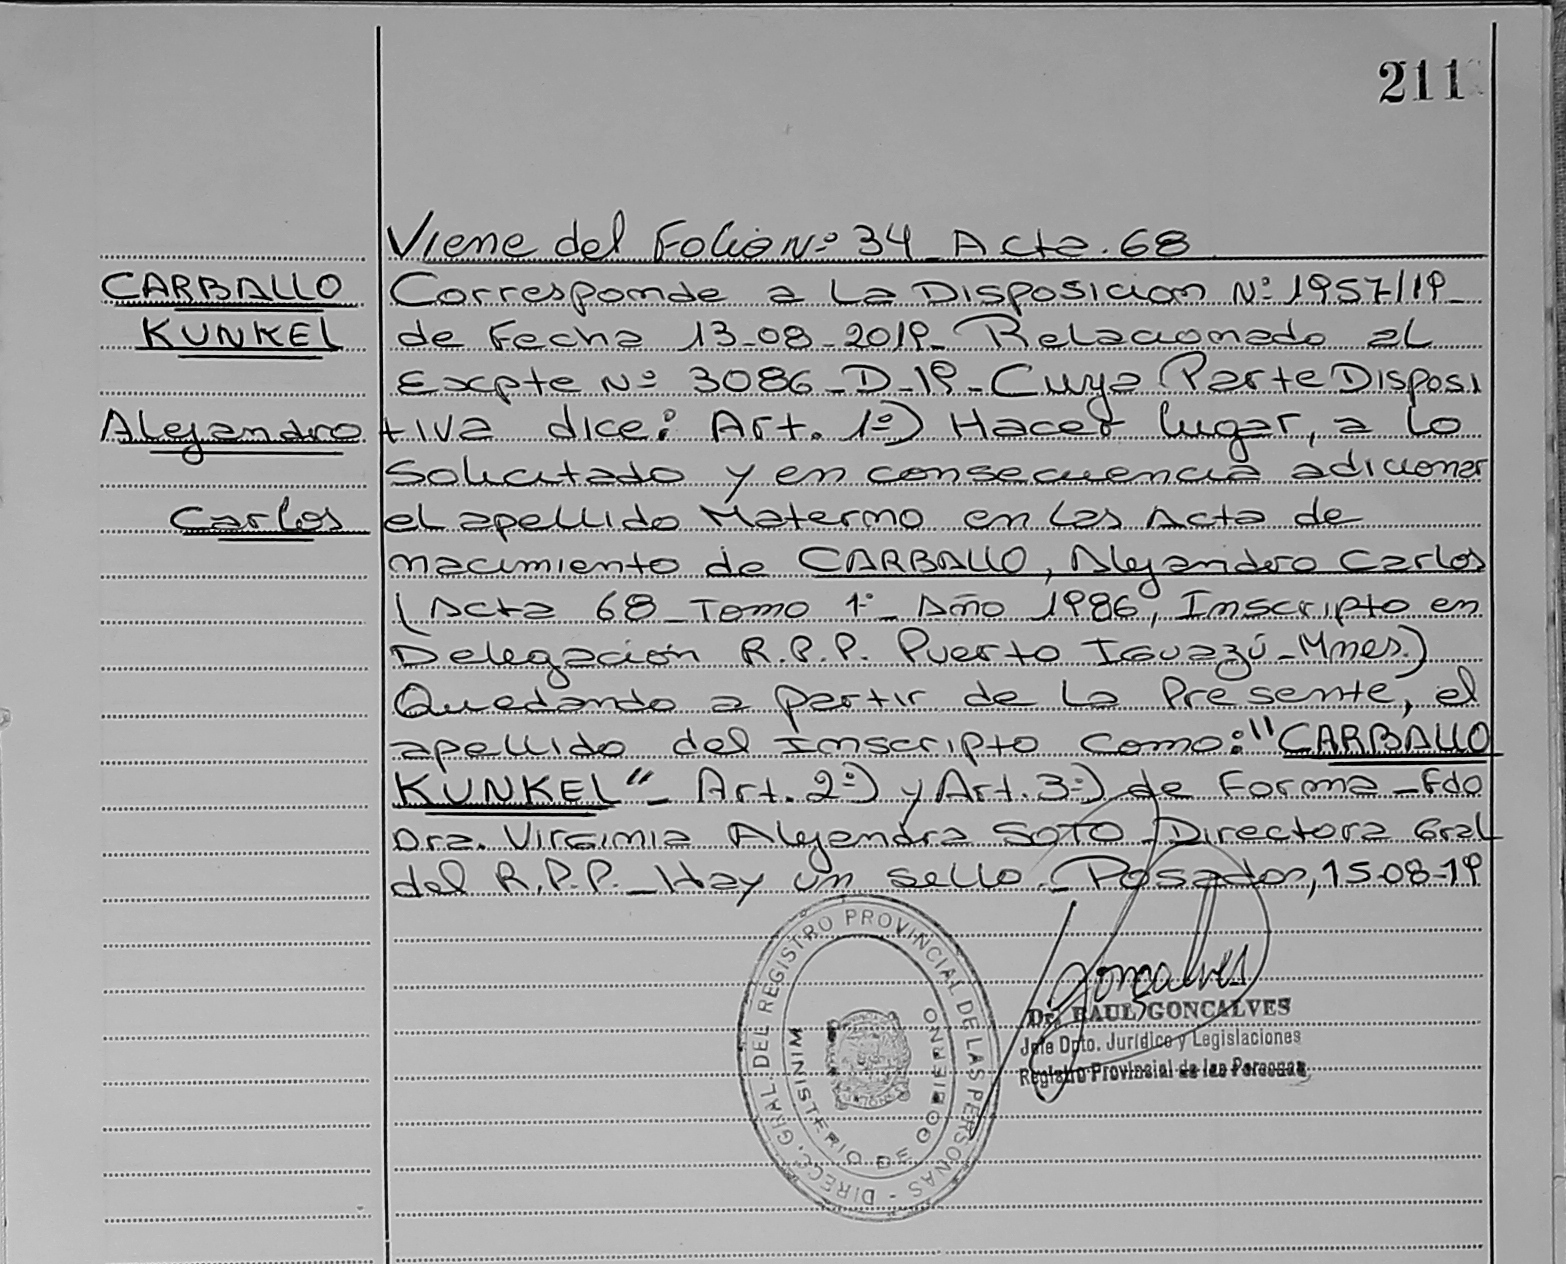 211
Viene del Folio Nº 34 _ Acta. 68
CARBALLO
KUNKEL
Alejandro
Carlos
Corresponde a La Disposicion Nº 1957/19_
de Fecha 13-08-2019_ Relacionado al
Expte Nº 3086_D_19_ Cuya Parte Disposi
tiva dice: Art. 1º) Hacer lugar, a lo
Solicitado y en consecuencia adicionar
el apellido Materno en las Acta de
nacimiento de CARBALLO, Alejandro Carlos
(Acta 68_Tomo 1º_ Año 1986, Inscripto en
Delegación R.P.P. Puerto Iguazú_Mnes.)
Quedando a partir de la Presente, el
apellido del Inscripto como: "CARBALLO
KUNKEL"_ Art. 2º) y Art. 3º) de Forma _Fdo
Dra. Virginia Alejandra SOTO_Directora Gral
del R.P.P._Hay un sello._ Posadas, 15-08-19
DIREC. GRAL. DEL REGISTRO PROVINCIAL DE LAS PERSONAS -
MINISTERIO DE GOBIERNO
Gonçalves
Dr. RAUL GONCALVES
Jefe Dpto. Jurídico y Legislaciones
Registro Provincial de las Personas